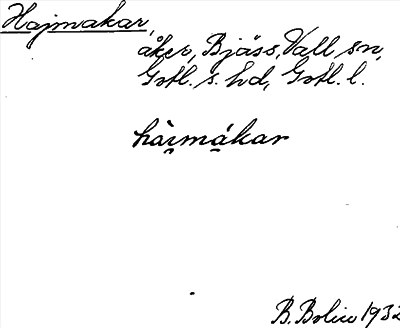 Hajmakar,
åker, Bjäss, Vall sn,
Gotl. s. hd, Gotl. l.
hài̯mákar
B. Bolin 1932